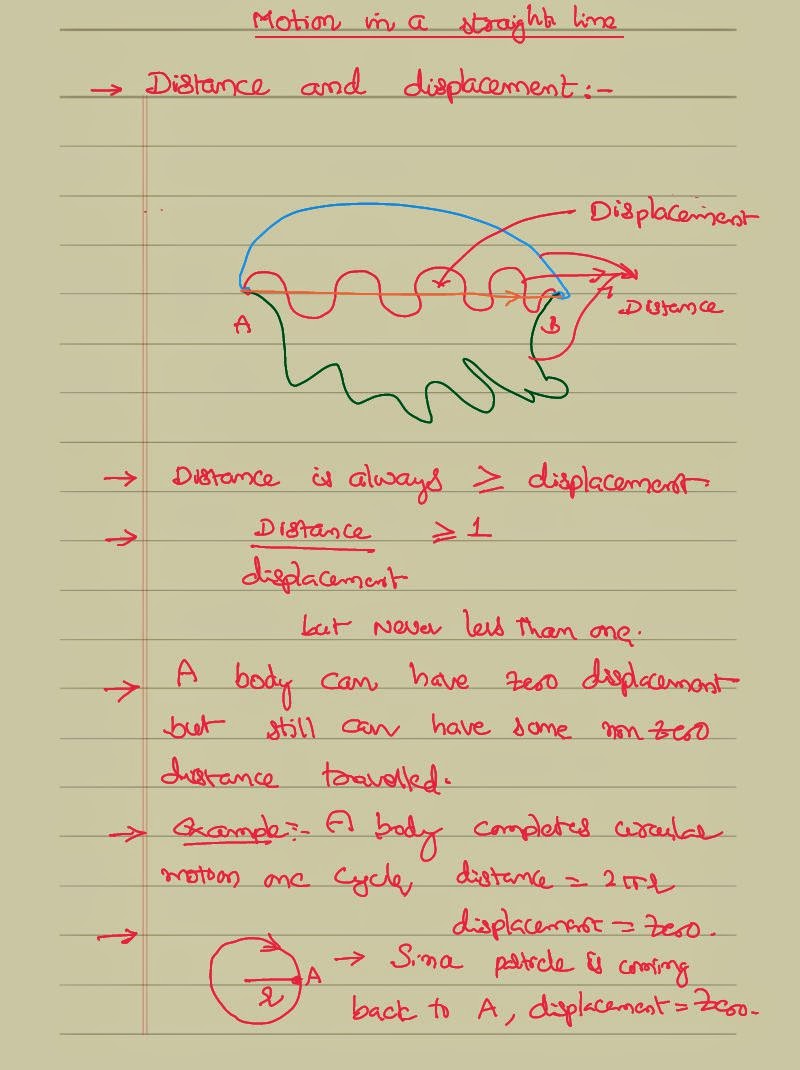 Motion in a straight line
→ Distance and displacement :-
Displacement
Distance
A
B
→ Distance is always ≥ displacement.
→ Distance ≥ 1
displacement
but never less than one.
→ A body can have zero displacement
but still can have some non zero
distance travelled.
→ Example :- A body completes circular
motion one cycle, distance = 2πr
displacement = zero.
→ r A → Since particle is coming
back to A, displacement = zero.